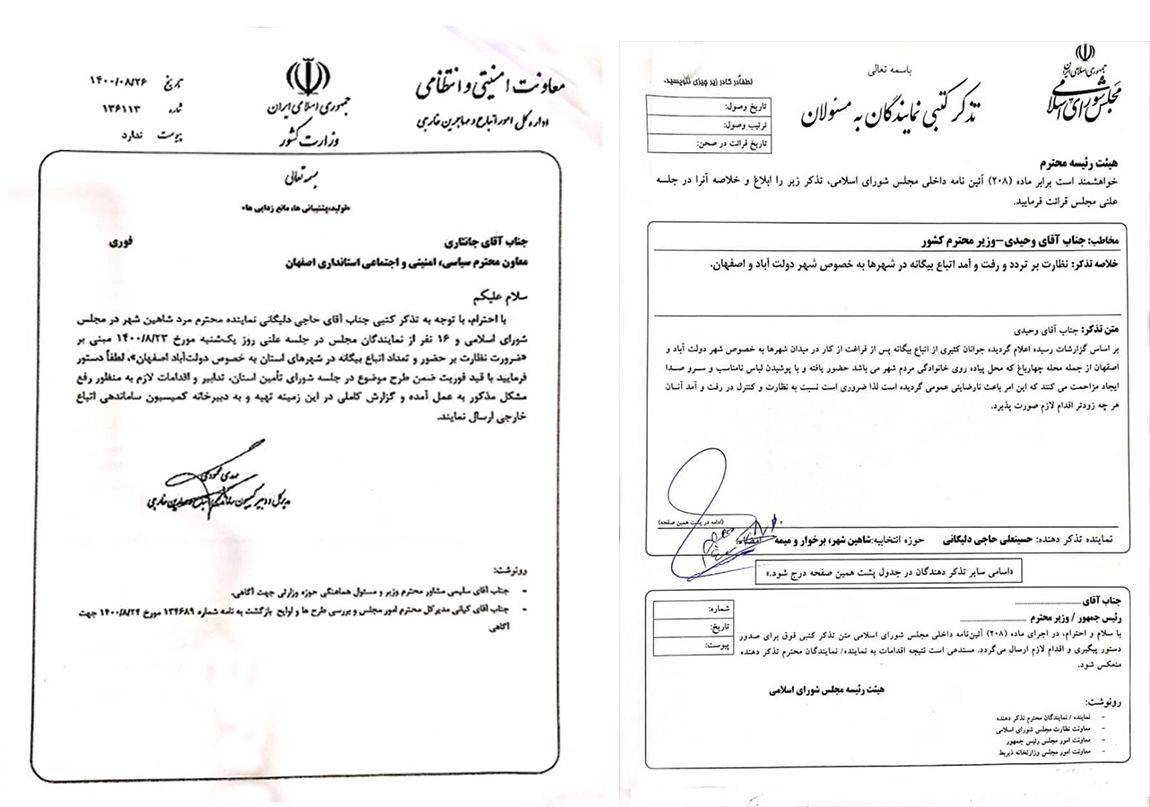 معاونت امنیتی و انتظامی
اداره کل امور اتباع و مهاجرین خارجی
جمهوری اسلامی ایران
وزارت کشور
تاریخ ۱۴۰۰/۰۸/۲۶
شماره ۱۳۶۱۱۳
پیوست ندارد
بسمه تعالی
«تولید،پشتیبانی ها، مانع زدایی ها»
جناب آقای جانثاری
فوری
معاون محترم سیاسی، امنیتی و اجتماعی استانداری اصفهان
سلام علیکم
با احترام، با توجه به تذکر کتبی جناب آقای حاجی دلیگانی نماینده محترم مرد شاهین شهر در مجلس
شورای اسلامی و ۱۶ نفر از نمایندگان مجلس در جلسه علنی روز یک‌شنبه مورخ ۱۴۰۰/۸/۲۳ مبنی بر
«ضرورت نظارت بر حضور و تعداد اتباع بیگانه در شهرهای استان به خصوص دولت‌آباد اصفهان»، لطفاً دستور
فرمایید با قید فوریت ضمن طرح موضوع در جلسه شورای تأمین استان، تدابیر و اقدامات لازم به منظور رفع
مشکل مذکور به عمل آمده و گزارش کاملی در این زمینه تهیه و به دبیرخانه کمیسیون ساماندهی اتباع
خارجی ارسال نمایند.
مهدی محمودی
مدیرکل و دبیر کمیسیون ساماندهی اتباع و مهاجرین خارجی
رونوشت:
- جناب آقای سلیمی مشاور محترم وزیر و مسئول هماهنگی حوزه وزارتی جهت آگاهی.
- جناب آقای کیانی مدیرکل محترم امور مجلس و بررسی طرح ها و لوایح بازگشت به نامه شماره ۱۳۴۶۸۹ مورخ ۱۴۰۰/۸/۲۴ جهت
آگاهی
جمهوری اسلامی ایران
مجلس شورای اسلامی
باسمه تعالی
تذکر کتبی نمایندگان به مسئولان
لطفاً در کادر زیر چیزی ننویسید.
تاریخ وصول:
ترتیب وصول:
تاریخ قرائت در صحن:
هیئت رئیسه محترم
خواهشمند است برابر ماده (۲۰۸) آئین نامه داخلی مجلس شورای اسلامی، تذکر زیر را ابلاغ و خلاصه آنرا در جلسه
علنی مجلس قرائت فرمایید.
مخاطب: جناب آقای وحیدی-وزیر محترم کشور
خلاصه تذکر: نظارت بر تردد و رفت و آمد اتباع بیگانه در شهرها به خصوص شهر دولت آباد و اصفهان.
متن تذکر: جناب آقای وحیدی
بر اساس گزارشات رسیده اعلام گردیده جوانان کثیری از اتباع بیگانه پس از فراغت از کار در میدان شهرها به خصوص شهر دولت آباد و
اصفهان از جمله محله چهارباغ که محل پیاده روی خانوادگی مردم شهر می باشد حضور یافته و با پوشیدن لباس نامناسب و سرو صدا
ایجاد مزاحمت می کنند که این امر باعث نارضایتی عمومی گردیده است لذا ضروری است نسبت به نظارت و کنترل در رفت و آمد آنان
هر چه زودتر اقدام لازم صورت پذیرد.
(ادامه در پشت همین صفحه)
نماینده تذکر دهنده: حسینعلی حاجی دلیگانی حوزه انتخابیه:شاهین شهر، برخوار و میمه
«اسامی سایر تذکر دهندگان در جدول پشت همین صفحه درج شود.»
جناب آقای ....................
رئیس جمهور / وزیر محترم ....................
شماره:
تاریخ:
پیوست:
با سلام و احترام، در اجرای ماده (۲۰۸) آئین‌نامه داخلی مجلس شورای اسلامی متن تذکر کتبی فوق برای صدور
دستور پیگیری و اقدام لازم ارسال می‌گردد. مستدعی است نتیجه اقدامات به نماینده/ نمایندگان محترم تذکر دهنده
منعکس شود.
هیئت رئیسه مجلس شورای اسلامی
رونوشت:
- نماینده / نمایندگان محترم تذکر دهنده
- معاونت نظارت مجلس شورای اسلامی
- معاونت امور مجلس رئیس جمهور
- معاونت امور مجلس وزارتخانه ذیربط